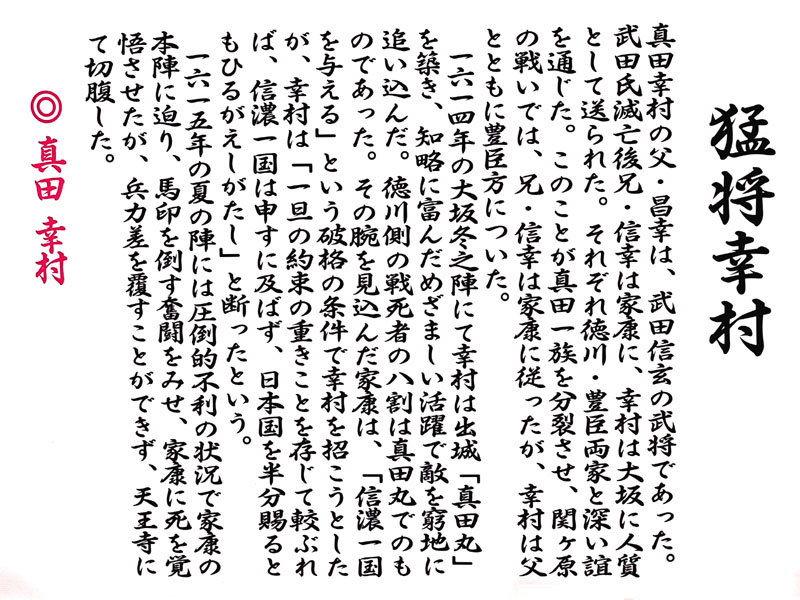 猛将幸村
真田幸村の父・昌幸は、武田信玄の武将であった。
武田氏滅亡後兄・信幸は家康に、幸村は大坂に人質
として送られた。それぞれ徳川・豊臣両家と深い誼
を通じた。このことが真田一族を分裂させ、関ヶ原
の戦いでは、兄・信幸は家康に従ったが、幸村は父
とともに豊臣方についた。
一六一四年の大坂冬之陣にて幸村は出城「真田丸」
を築き、知略に富んだめざましい活躍で敵を窮地に
追い込んだ。徳川側の戦死者の八割は真田丸でのも
のであった。その腕を見込んだ家康は、「信濃一国
を与える」という破格の条件で幸村を招こうとした
が、幸村は「一旦の約束の重きことを存じて較ぶれ
ば、信濃一国は申すに及ばず、日本国を半分賜ると
もひるがえしがたし」と断ったという。
一六一五年の夏の陣には圧倒的不利の状況で家康の
本陣に迫り、馬印を倒す奮闘をみせ、家康に死を覚
悟させたが、兵力差を覆すことができず、天王寺に
て切腹した。
◎ 真田 幸村